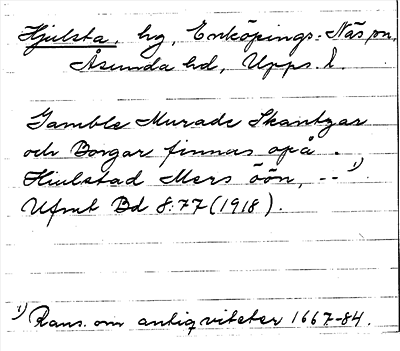 Hjulsta, hg, Enköpings-Näs sn,
Åsunda hd, Upps. l.
Gamble Murade Skantzar
och Borgar finnas opå .
Hiulstad Mers öön, -- 1)
Ufmt Bd 8:77 (1918).
1) Rans. om antiqviteter 1667-84.